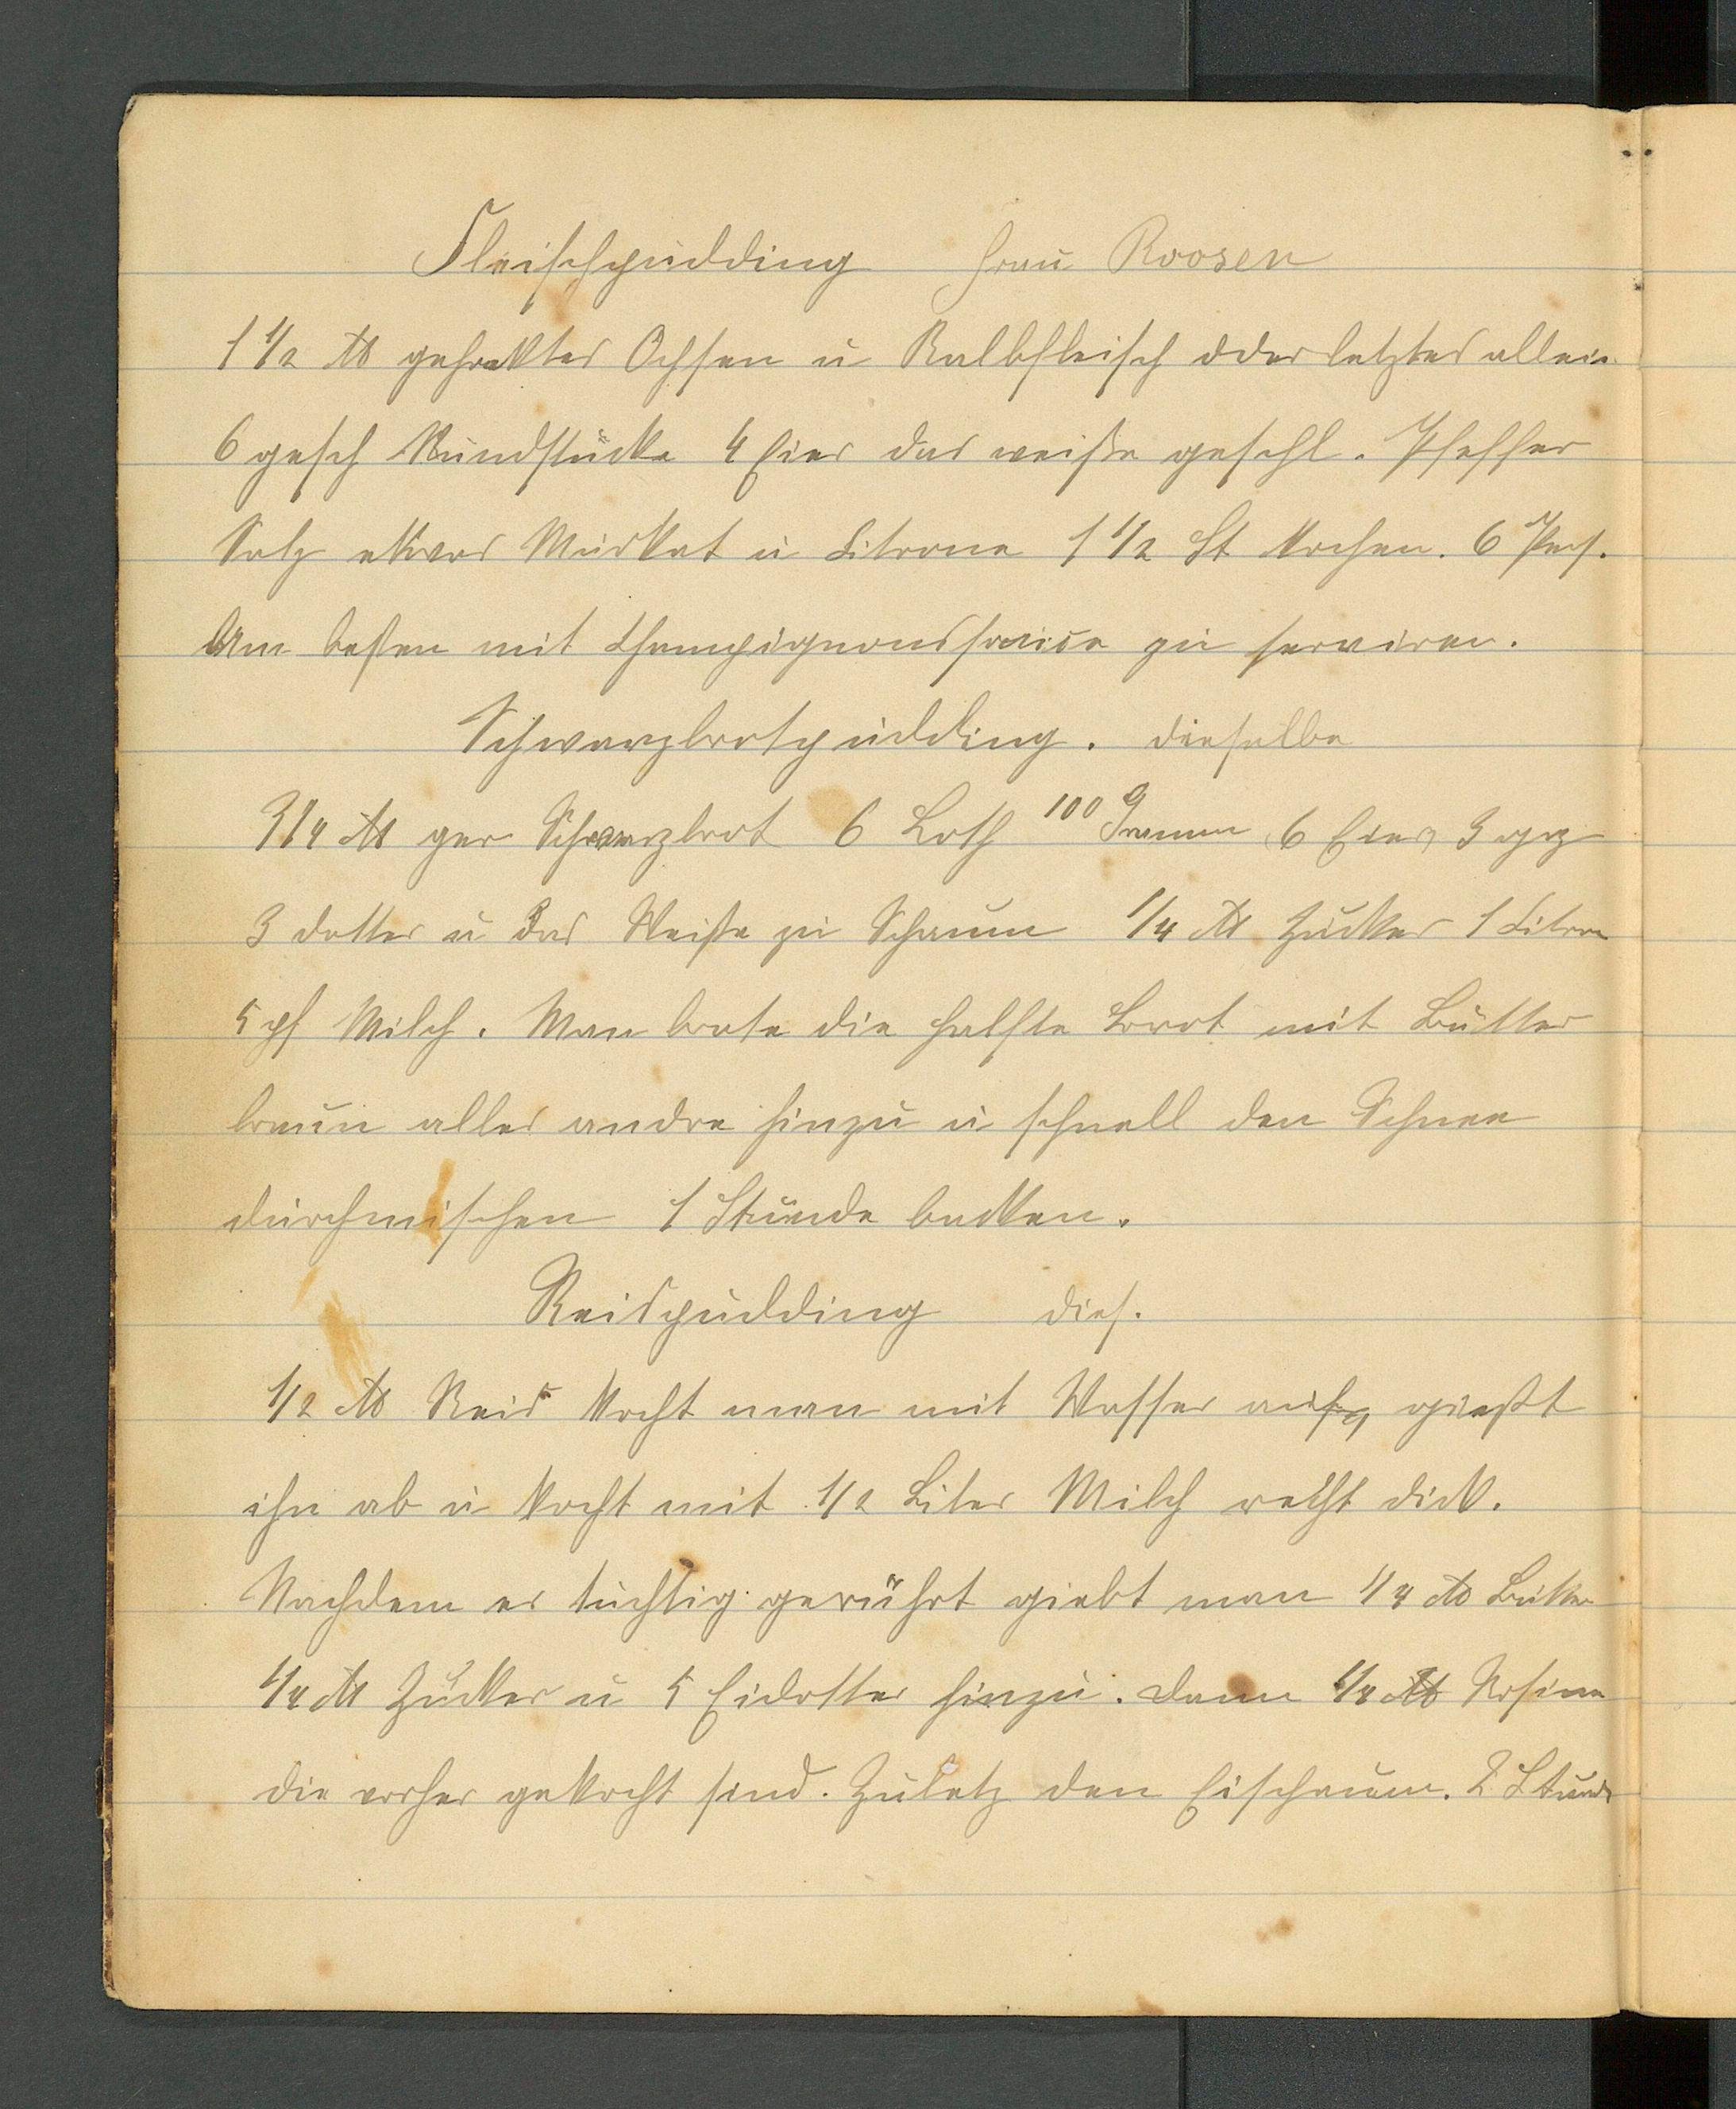 Fleischpudding Frau Roosen
1 1/2 ℔ gehacktes Ochsen u Kalbfleisch oder letztes allein
6 gesch Rundstücke 4 Eier das weiße geschl. Pfeffer
Salz etwas Muskat u Citrone 1 1/2 St kochen. 6 Pers.
Am besten mit Champignonssauce zu serviren.
Schwarzbrotpudding. dieselbe
3/4 ℔ ger Schwarzbrot 6 Loth 100 Gramm 6 Eier, 3 gz
3 dotter u das Weiße zu Schaum 1/4 ℔ Zucker 1 Citron
5 Milch. Man brate die halfte Brot mit Butter
braun alles andre hinzu u schnell den Schnee
durchmischen 1 Stunde backen.
Reispudding dies.
1/2 ℔ Reis kocht man mit Wasser auf, gießt
ihn ab u kocht mit 1/2 Liter Milch recht dick.
Nachdem er tüchtig gerührt giebt man 1/4 ℔ Butter
1/4 ℔ Zucker u 5 Eidotter hinzu. dann 1/4 ℔ Rosinen
die vorher gekocht sind. Zuletz den Eischaum. 2 Stunde